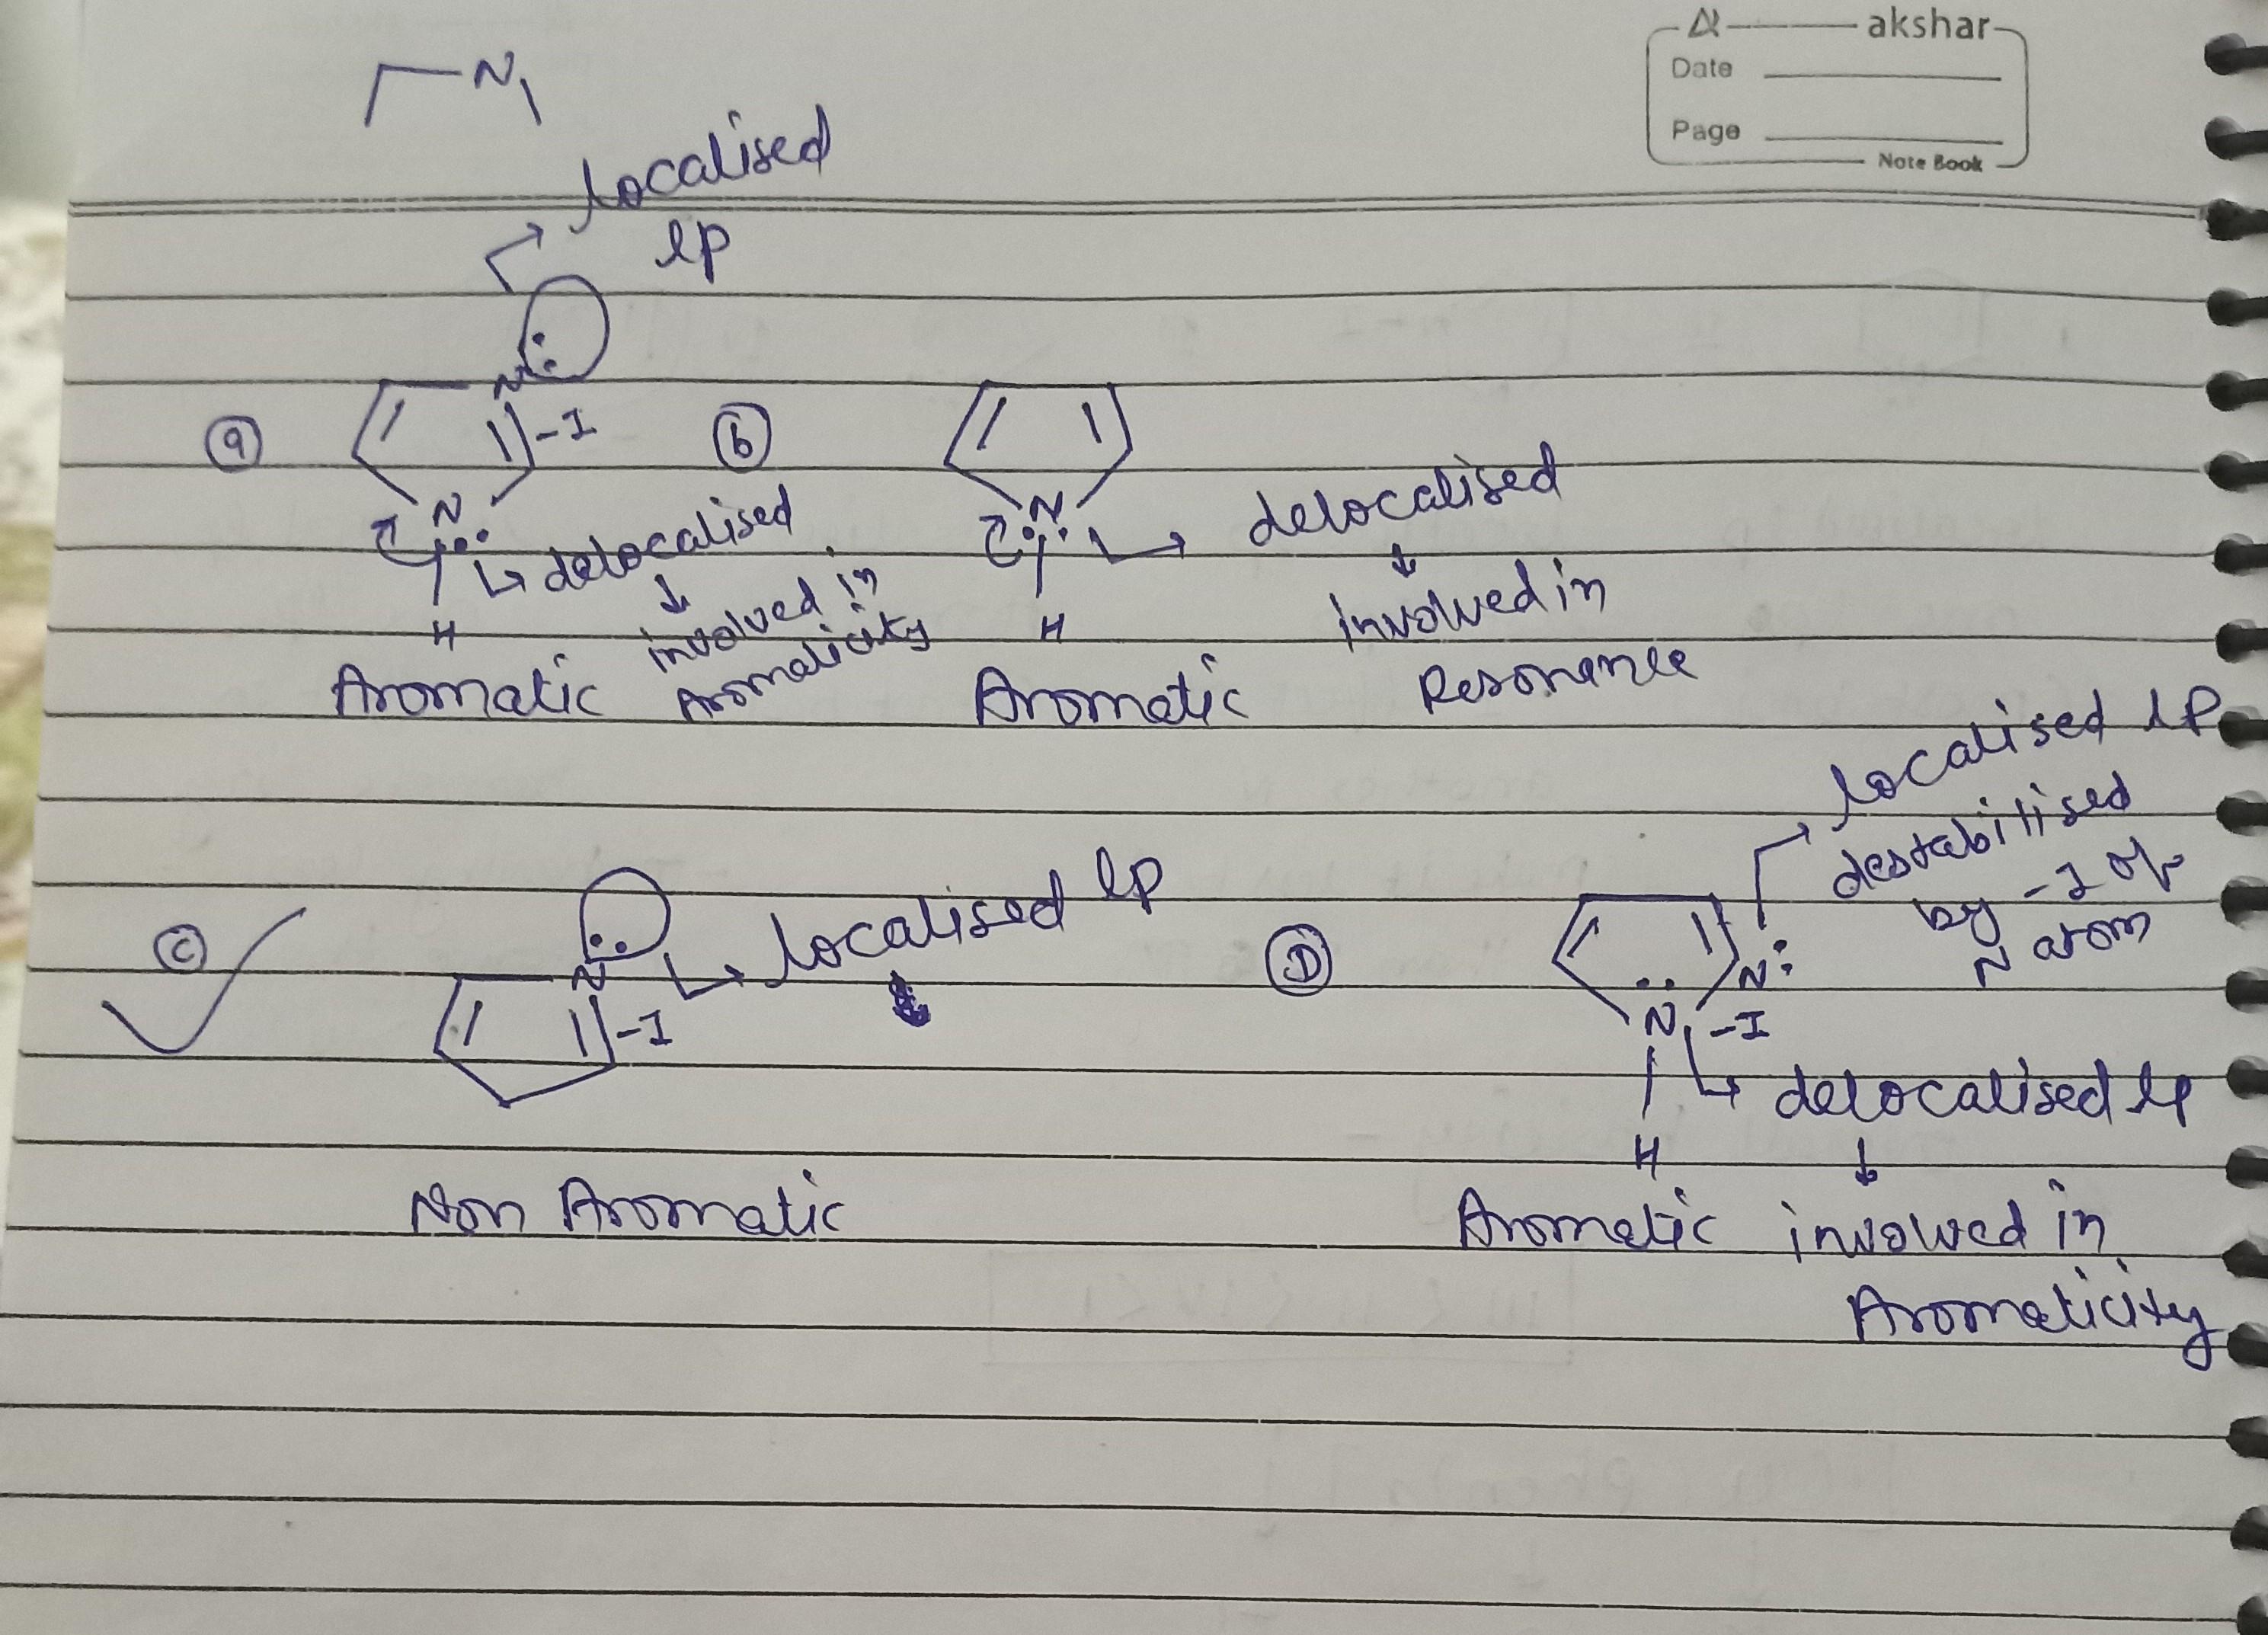 akshar
Date
Page
Note Book
N
localised
lp
N
(a)
-I
N
H
delocalised
↓
involved in
Aromaticity
Aromatic
(b)
N
H
delocalised
↓
involved in
Resonance
Aromatic
(c)
N
-I
localised lp
Non Aromatic
(D)
N
-I
N
H
localised lp
destabilised
by -I of
N atom
delocalised lp
↓
involved in
Aromaticity
Aromatic